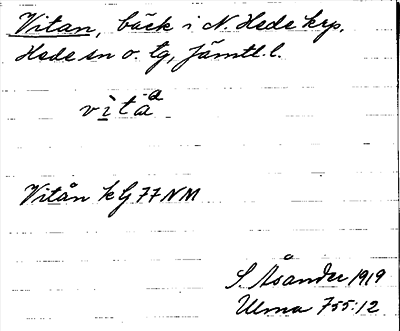 Vitan, bäck i N. Hede krp.
Hede sn o. tg, Jämtl. l.
Vitån k G 77 NM
S. Åsander 1919
Ulma 755:12